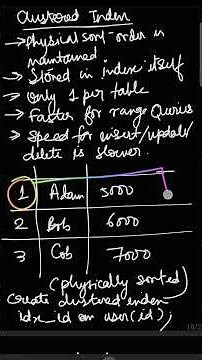 Clustered Index
→ Physical sort-order is
maintained.
→ Stored in index itself
→ Only 1 per table
→ Faster for range Queries
→ Speed for insert/update/
delete is slower.
1 Adam 5000
2 Bob 6000
3 Cob 7000
(physically sorted)
Create clustered index
idx_id on user(id);